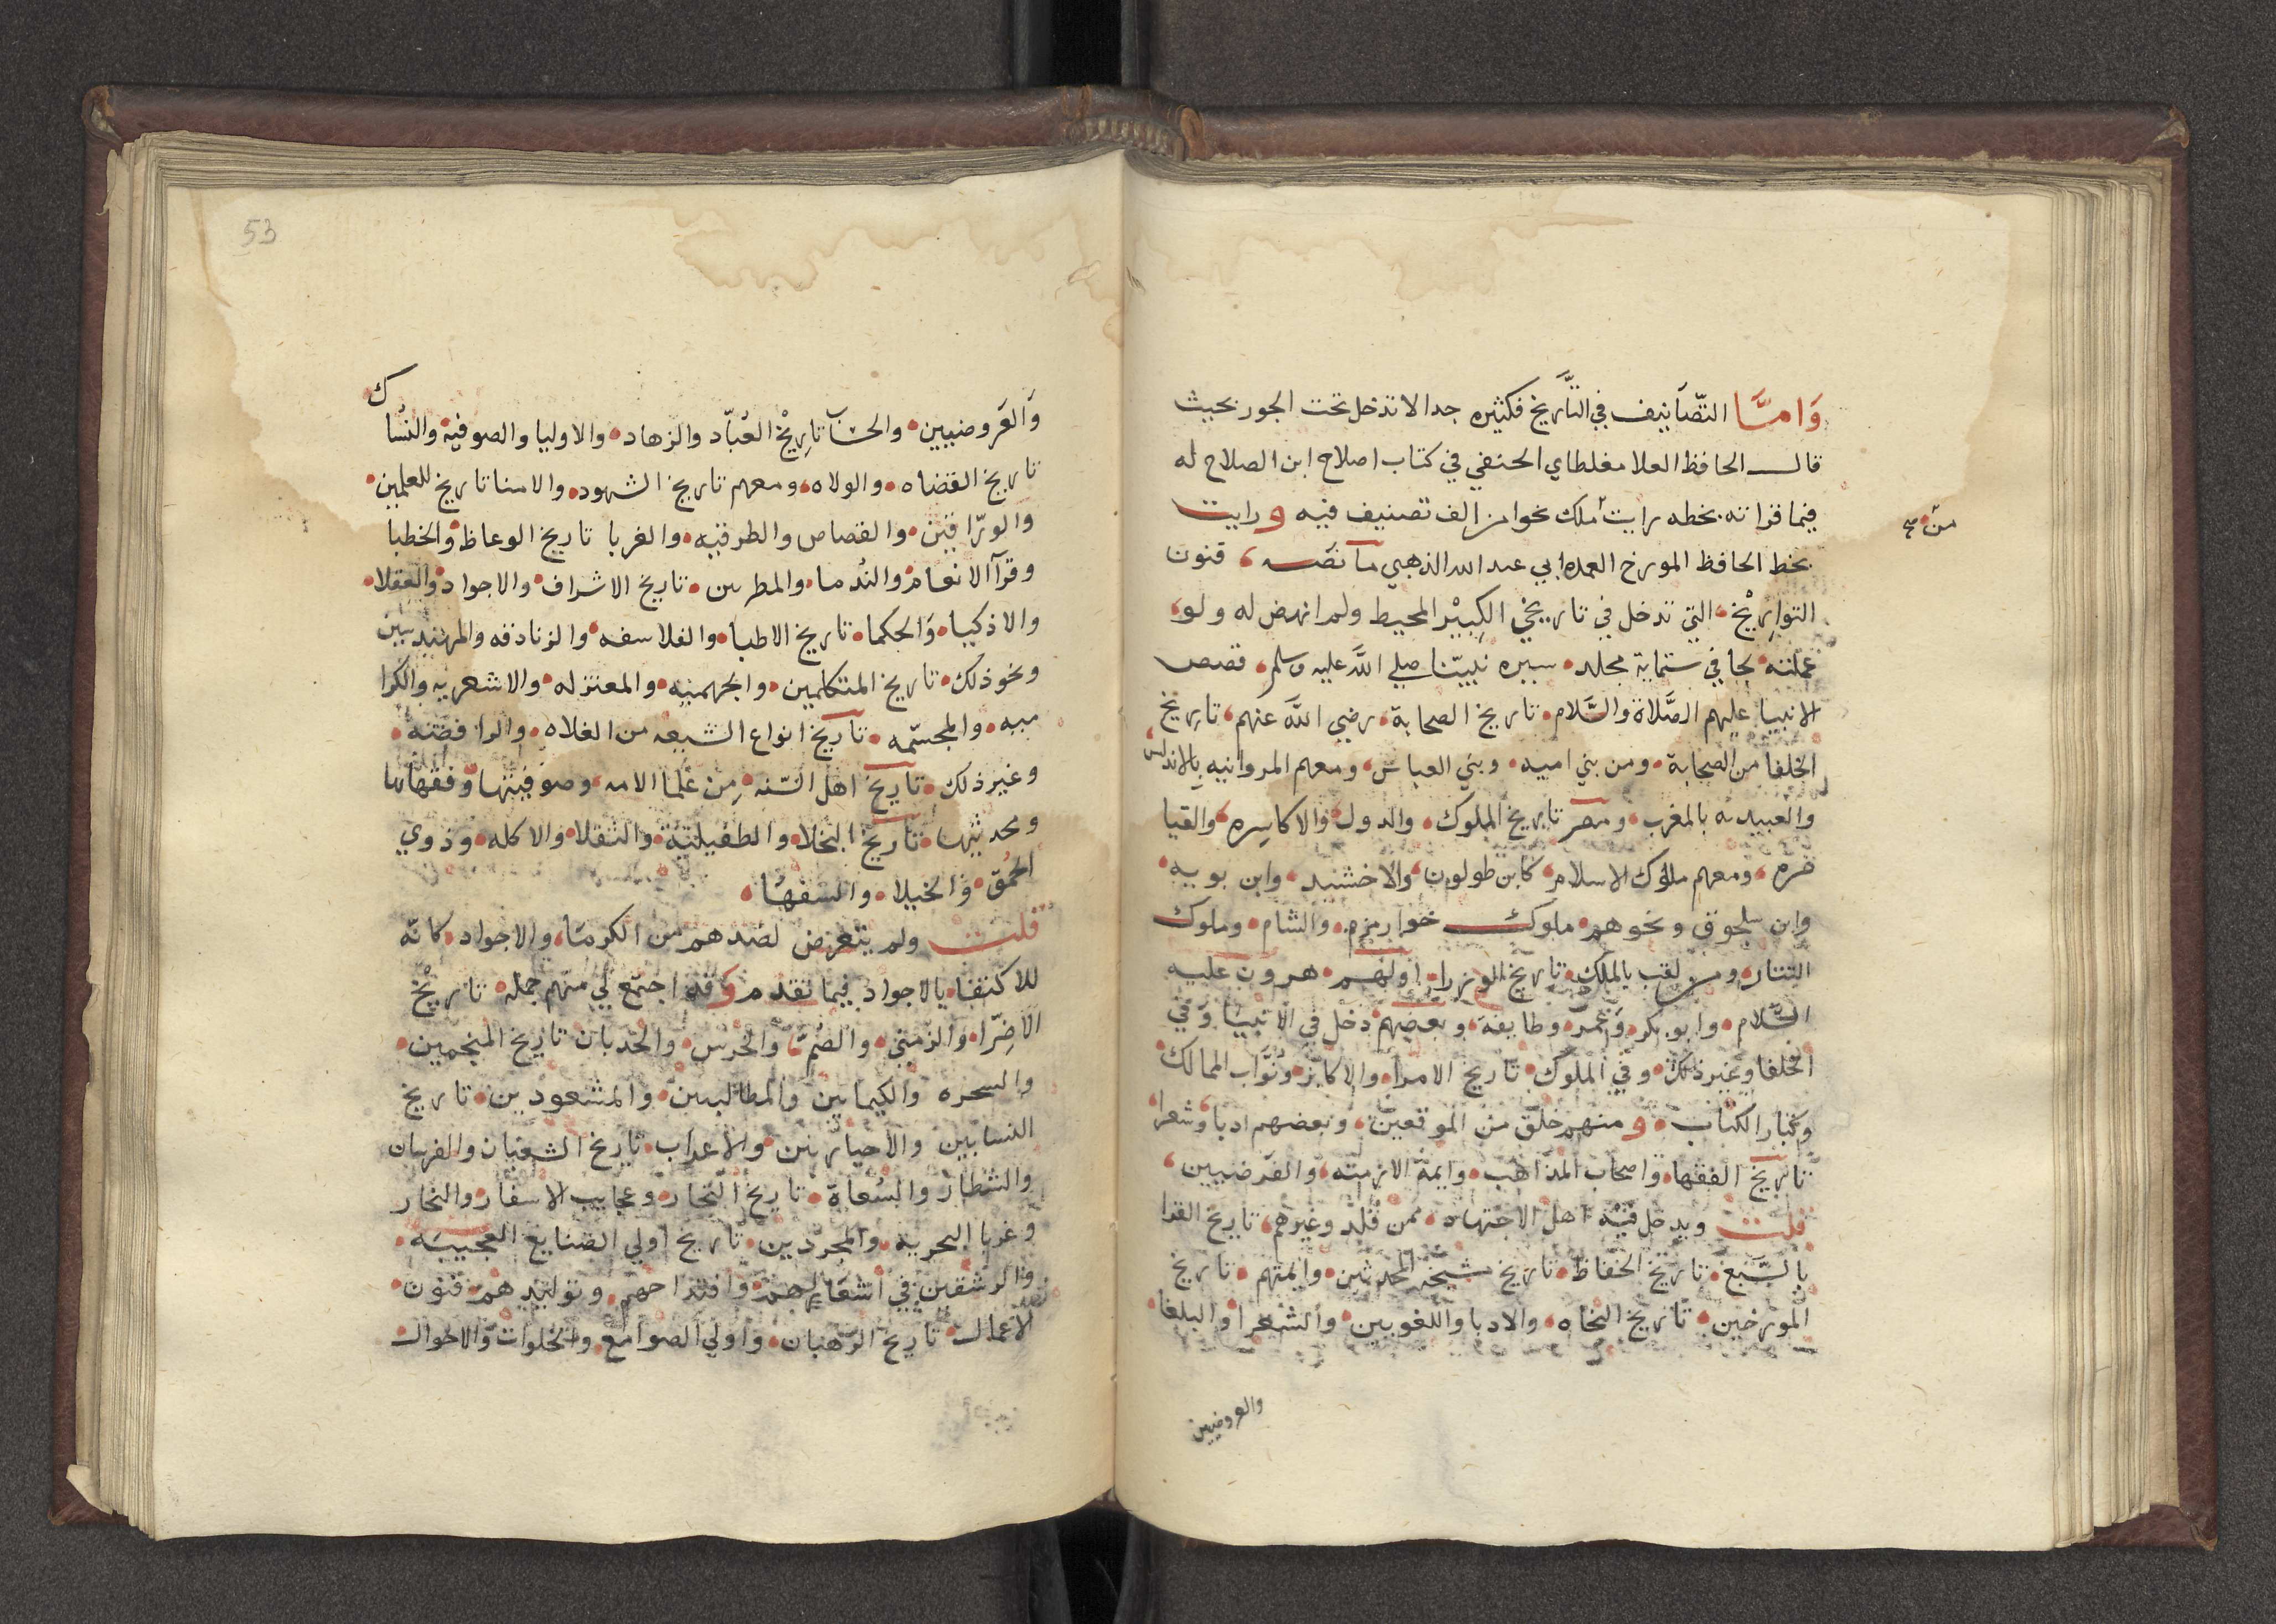 وَامَّا التّصَانيف في التَّاريخ فكثيره جدا لا تدخل تحت الجور بحيث
قال الحافظ العلا مغلطاي الحنفي في كتاب اصلاح ابن الصلاح له
فيما قراته بخطه رايت ملك نحوا من الف تصنيف فيه ورايت
من صح
بخط الحافظ المورخ العمده ابي عبد الله الذهبي ما نصّه، فنون
التوارِيْخ، التي تدخل في تاريخي الكبِيْر المحيط ولم انهض له ولو
عملته لجا في ستماية مجلد، سيره نبيّنا صلي اللَّه عليه وسلم، قصص
الانبيا عليهم الصَّلاة والسَّلام، تاريخ الصحابة، رضي اللَّه عنهم، تاريخ
الخلفا من الصحابة، ومن بني اميه، وبني العباس، ومعهم المروانيه بالاندلس
والعبيديه بالمغرب، ومصر تاريخ الملوك، والدول، والاكاسِره، والقيا
صره، ومعهم ملوك الاسلام، كابن طولون، والاخشيد، وابن بويه،
وابن سلجوق ونحوهم، ملوك خوارزم، والشام، وملوك
التتار، ومن لقب بالملك، تاريخ الوزرا، اولهم، هرون عليه
السَّلام، وابو بكر، وَعُمر، وطايفة، وبعضهم دخل في الانبيَا وَفي
الخلفا وغير ذلك، وفي الملوك، تاريخ الامرا، والاكابر، ونُوَّاب الممالك،
وكبار الكتاب، ومنهم خلق من الموقعين، وبعضهم ادبا وشعرا،
تاريخ الفقها، واصحاب المذاهب، وايمة الازمنه، والفرضيين،
قلت ويدخل فيه اهل الاجتهاد، ممن قُلّد وغيرهم، تاريخ القرا
بالسَّبع، تاريخ الحفاظ، تاريخ شيخه المحدثين، وايمتهم، تاريخ
المورخين، تاريخ النحاه، والادبا واللغويين، والشعرا، والبلغا،
والعروضيين
53
وَالعَروضيين، والحسَاب تارِيْخ العُبَّاد والزهاد، والاوليا والصوفيه، والنُسَاك
تاريخ القضاه، والولاه، ومعهم تاريخ الشهود، والامنا تاريخ للعلمين،
والورّاقين، والقصاص والطرقيه، والغربا تاريخ الوعاظ، والخطبا
وقرآ الانغام، والنُدما، والمطربين، تاريخ الاشراف، والاجواد، والعقلا،
والاذكيا، وَالحكما، تاريخ الاطبا، والفلاسفه، والزنادقه والمهندسين
ونحو ذلك، تاريخ المتكلمين، والجهميه، والمعتزله، والاشعريه والكرا
ميه، والمجسّمه، تاريخ انواع الشيعه من الغلاه، والرافضه،
وغير ذلك، تاريخ اهل السّنه، مِن عُلما الامه، وصوفيتها، وفقهايها
ومحدثيها، تاريخ البخلا، والطفيلية، والثقلا، والاكله، وذوي
الحُمق، والخيلا، والسفهَا،
قلت ولم يتعرض لضدهم من الكرمَا، والاجواد، كانّه
للاكتفا بالاجواد فيما تقدم وقد اجتمع لي منهم جمله تاريْخ
الاضِرّا، والزَّمني، والصُّم، والخرس، والحدبان تاريخ المنجمين،
والسحره والكيمايين والمطالبين، والمشعوذين، تاريخ
النسابين والاخباريين، والاعراب، تاريخ الشجعان والفرسان
والشطار والسُعاة، تاريخ التجار، وعجايب الاسفار، والبحار
وغربا البحريه، والمجرّدين، تاريخ اولي الصنايع العجيبَه،
والرشقين في اشغالهم، واقتراحهم، وتوليدهم، فنون،
الاعمال، تاريخ الرّهبان، واولي الصوامع، والخلوات، والاحوال